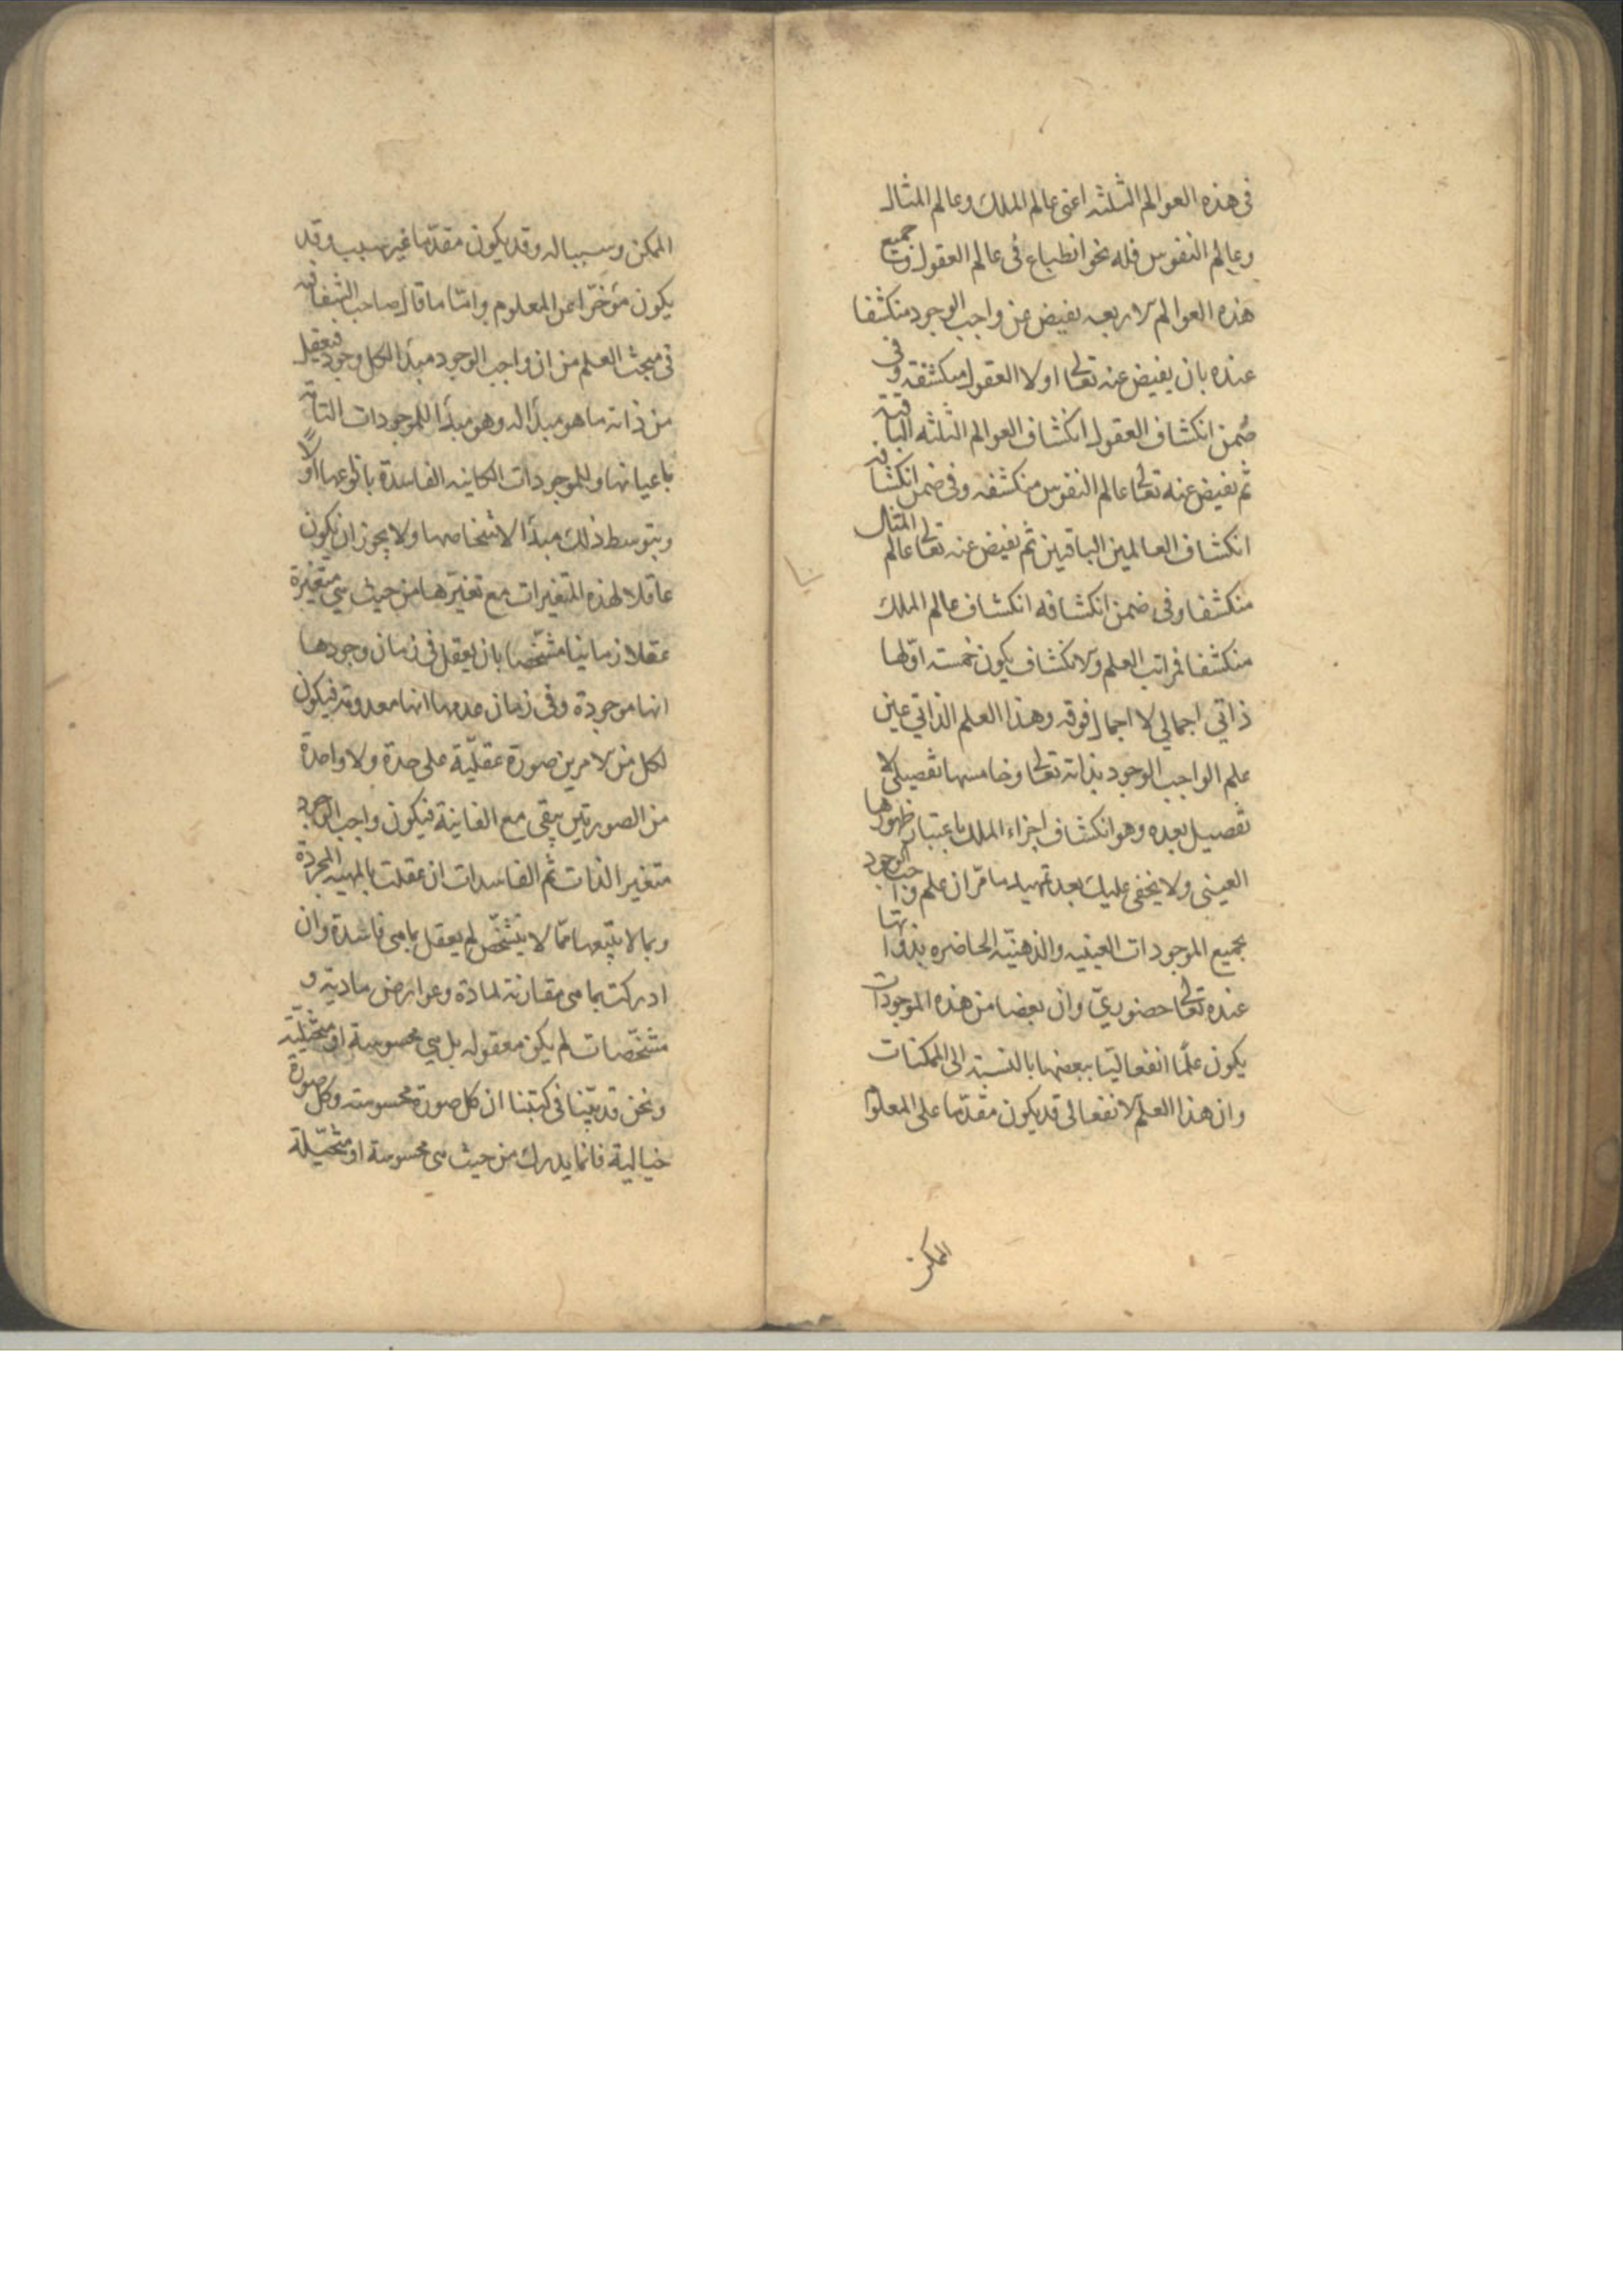 في هذه العوالم الثلثه اعنى عالم الملك وعالم المثال
وعالم النفوس فله نحو انطباع في عالم العقول وجميع
هذه العوالم الاربعه يفيض عن واجب الوجود منكشفا
عنده بان يفيض عنه تعالى اولا العقول منكشفه وفي
ضمن انكشاف العقول انكشاف العوالم الثلثه الباقية
ثم يفيض عنه تعالى عالم النفوس منكشفه وفى ضمن انكشافه
انكشاف العالمين الباقيين ثم يفيض عنه تعالى عالم المثال
منكشفا وفى ضمن انكشافه انكشاف عالم الملك
منكشفا فمراتب العلم والانكشاف يكون خمسته اولها
ذاتي اجمالي لا اجمال فوقه وهذا العلم الذاتي عين
علم الواجب الوجود بذاته تعالى وخامسها تفصيلي لا
تفصيل بعده وهو انكشاف اجزاء الملك باعتبار ظهورها
العينى ولا يخفى عليك بعد تمهيد ما مرّ ان علم واجب الوجود
بجميع الموجودات العينيه والذهنيّه الحاضره بذواتها
عنده تعالى حضوريّ وان بعضا من هذه الموجودات
يكون علمًا انفعاليّا ببعضها بالنسبة الى الممكنات
وان هذا العلم الانفعالى قد يكون مقدّما على المعلوم
الممكن
الممكن وسببا له وقد يكون مقدّما غير سبب وقد
يكون مؤخّرا عن المعلوم وامّا ما قال صاحب الشفا
فى مبحث العلم من ان واجب الوجود مبدأ لكل وجود فيعقل
من ذاته ما هو مبدأ له وهو مبدأ للموجودات التامّة
باعيانها وللموجودات الكاينه الفاسدة بانوعها اوّلاً
وبتوسط ذلك مبدأ لاشخاصها ولا يجوز ان يكون
عاقلا لهذه المتغيرات مع تغيّرها من حيث هي متغيّرة
عقلا زمانيا مشخّصا بان يعقل في زمان وجودها
انها موجودة وفى زمان عدمها انها معدومة فيكون
لكل من الامرين صورة عقليّة على حدة ولا واحدة
من الصورتين يبقى مع الثانية فيكون واجب الوجود
متغير الذات ثم الفاسدات ان عقلت بالمهية المجرّدة
وبما لا يتبعها ممّا لا يتشخّص لم يعقل بما هى فاسدة وان
ادركت بما هى مقارنة لمادة وعوارض مادية و
مشخّصات لم يكن معقوله بل هي محسوسة او متخيّلة
ونحن قد بيّنا فى كتبنا ان كل صورة محسوسه وكل صورة
خيالية فانّما يدرك من حيث هى محسوسة او متخيّلة